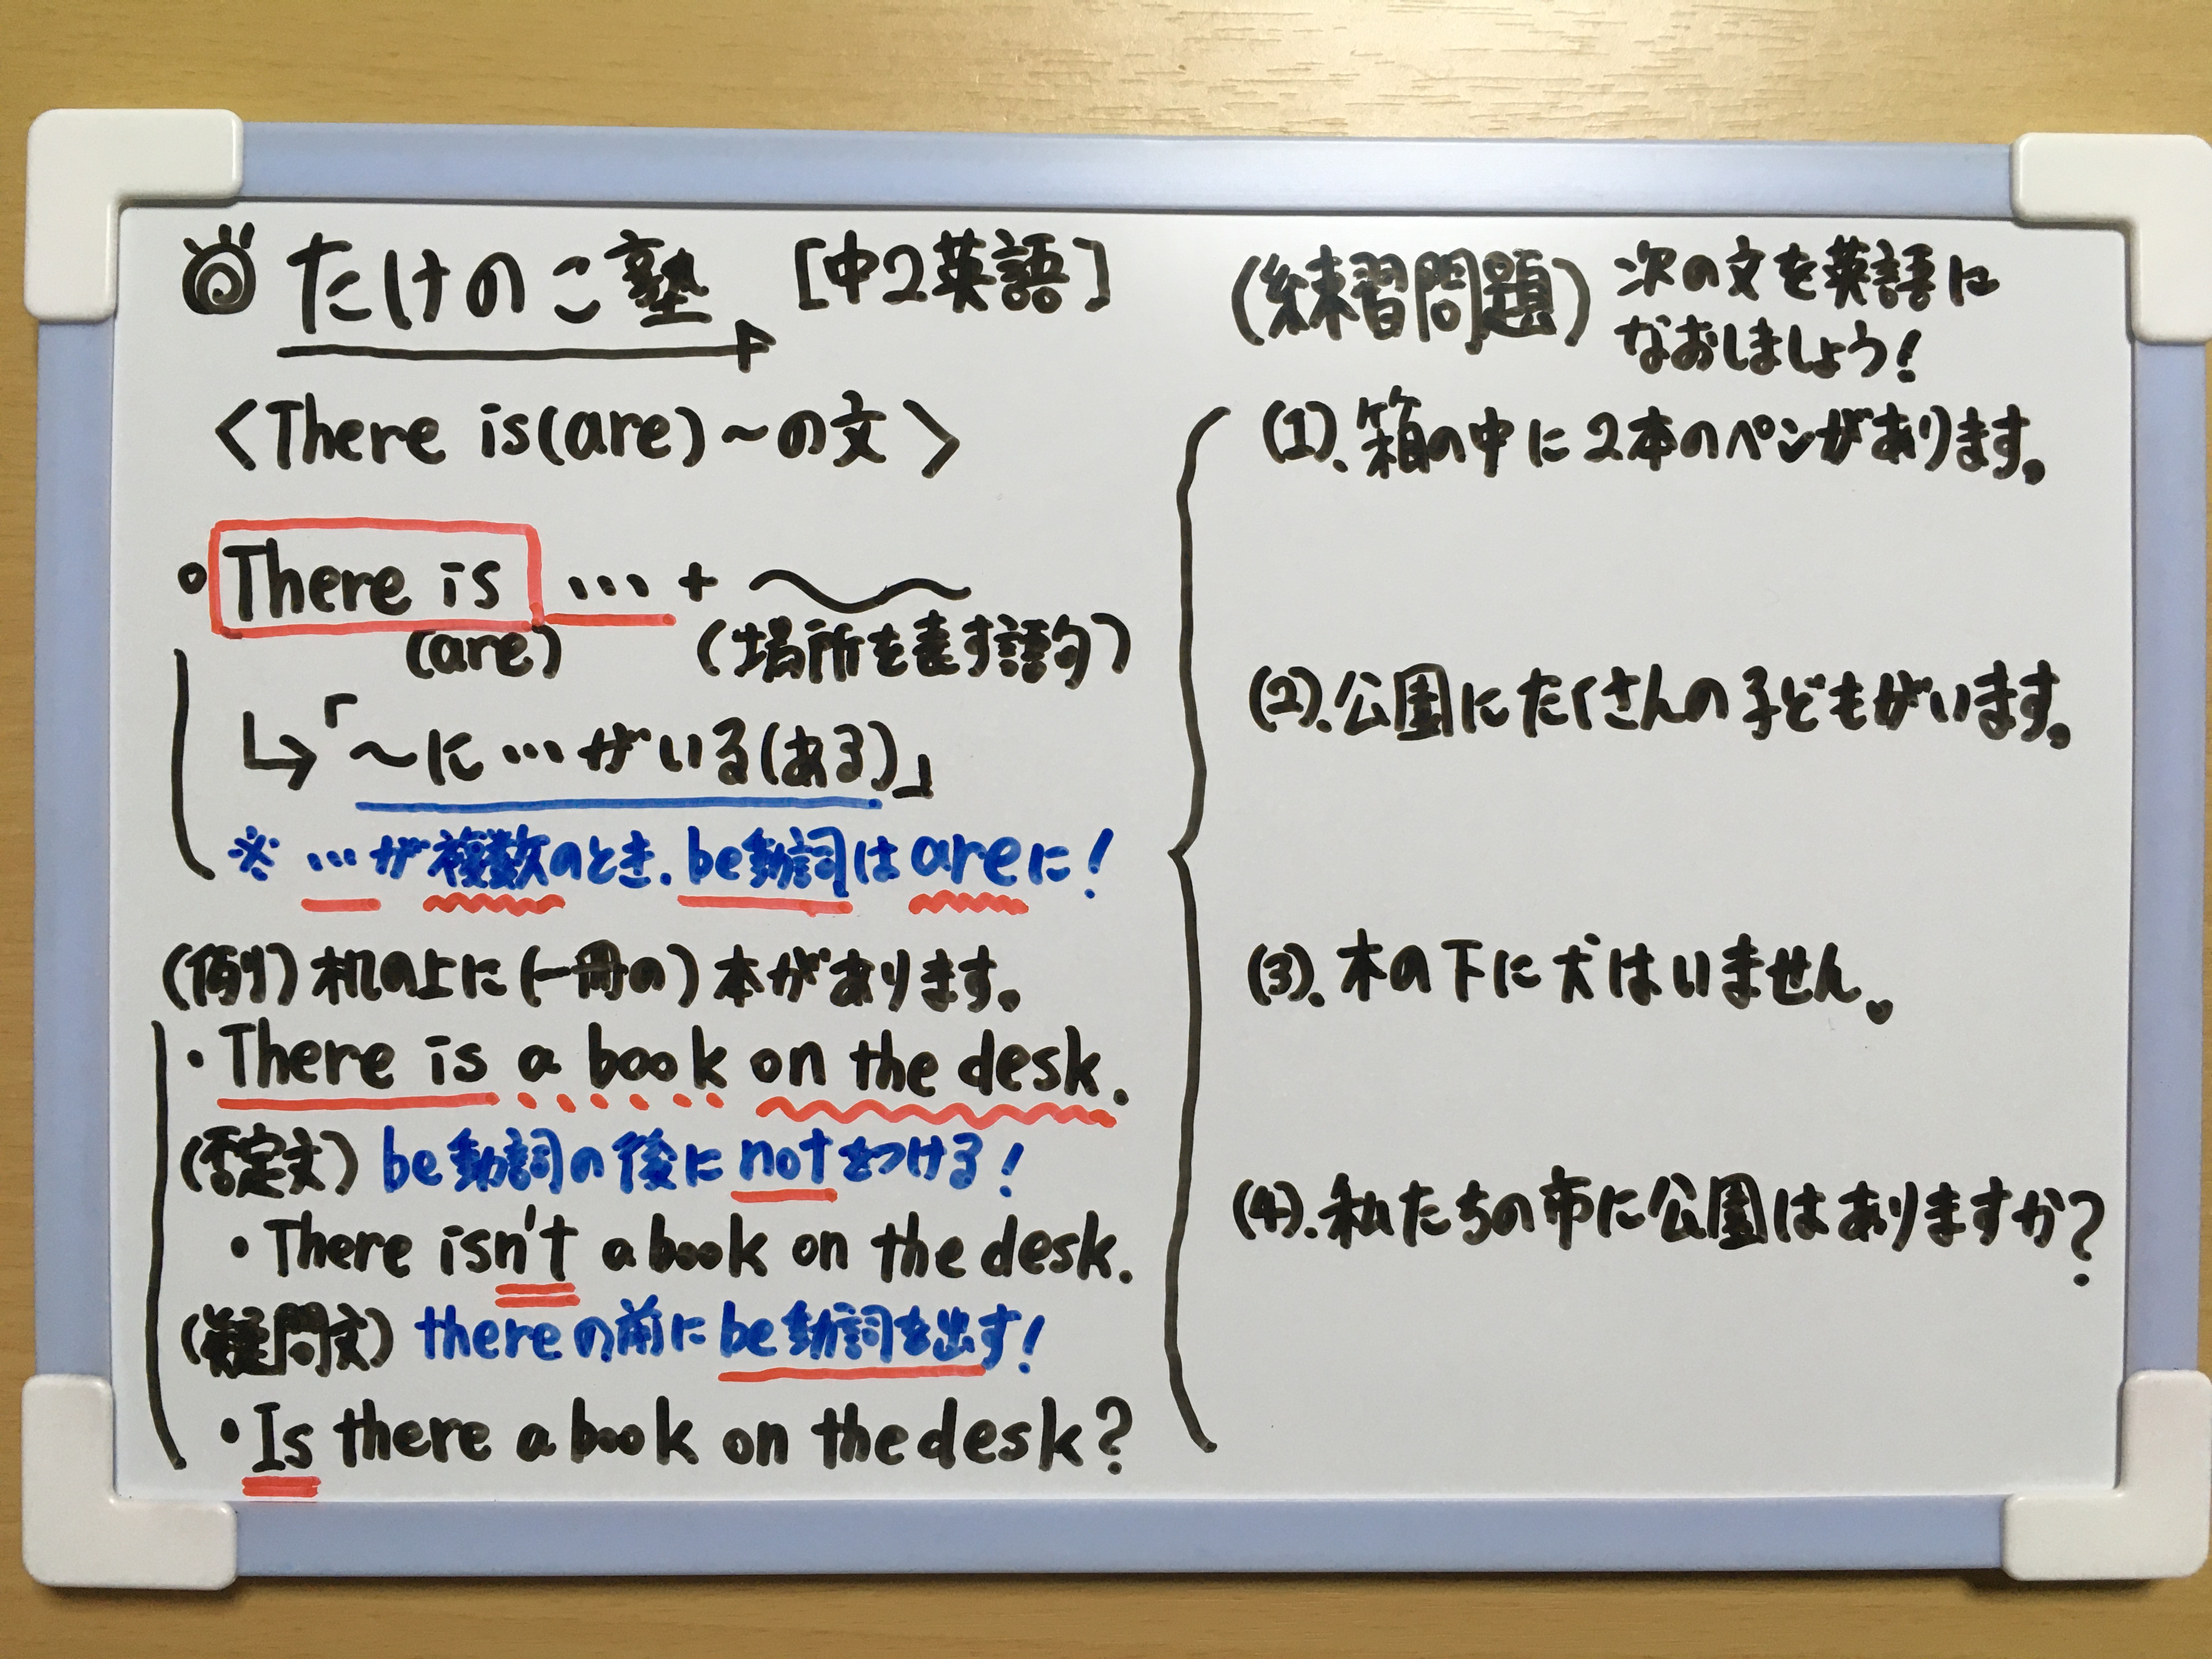 たけのこ塾 [中2英語]
<There is(are)～の文>
There is … + 〜
(are) (場所を表す語句)
↳「～に…がいる(ある)」
※ …が複数のとき、be動詞はareに!
(例) 机の上に(一冊の)本があります。
・There is a book on the desk.
(否定文) be動詞の後にnotをつける!
・There isn't a book on the desk.
(疑問文) thereの前にbe動詞を出す!
・Is there a book on the desk?
(練習問題) 次の文を英語に
なおしましょう!
(1). 箱の中に2本のペンがあります。
(2). 公園にたくさんの子どもがいます。
(3). 木の下に犬はいません。
(4). 私たちの市に公園はありますか?